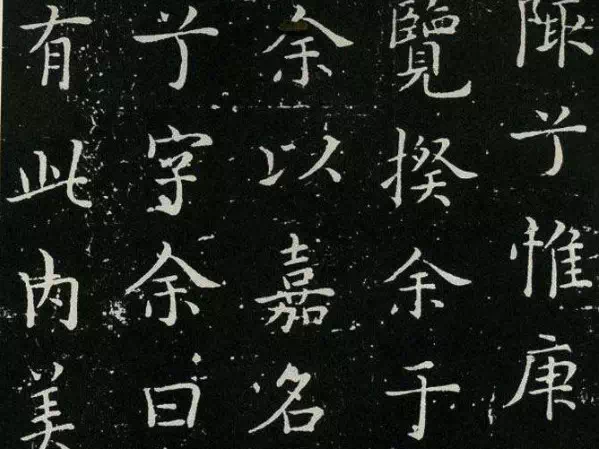 陬兮惟庚
覽揆余于
余以嘉名
兮字余曰
有此内美